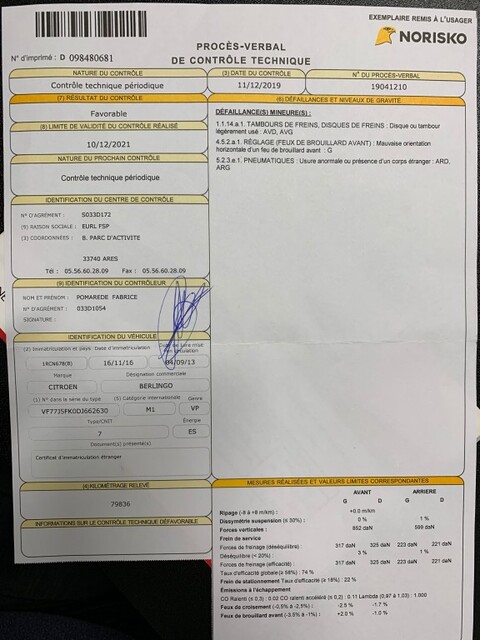 EXEMPLAIRE REMIS À L'USAGER
NORISKO
N° d'imprimé : D 098480681
PROCÈS-VERBAL
DE CONTRÔLE TECHNIQUE
NATURE DU CONTRÔLE
Contrôle technique périodique
(3) DATE DU CONTRÔLE
11/12/2019
N° DU PROCÈS-VERBAL
19041210
(7) RÉSULTAT DU CONTRÔLE
Favorable
(8) LIMITE DE VALIDITÉ DU CONTRÔLE RÉALISÉ
10/12/2021
NATURE DU PROCHAIN CONTRÔLE
Contrôle technique périodique
IDENTIFICATION DU CENTRE DE CONTRÔLE
N° D'AGRÉMENT : S033D172
(9) RAISON SOCIALE : EURL FSP
(3) COORDONNÉES : 8. PARC D'ACTIVITE
33740 ARES
Tél : 05.56.60.28.09 Fax : 05.56.60.28.09
(9) IDENTIFICATION DU CONTRÔLEUR
NOM ET PRÉNOM : POMAREDE FABRICE
N° D'AGRÉMENT : 033D1054
SIGNATURE :
IDENTIFICATION DU VÉHICULE
(2) Immatriculation et pays Date d'immatriculation Date de 1ère mise en circulation
1RCN678(B) 16/11/16 04/09/13
Marque Désignation commerciale
CITROEN BERLINGO
(1) N° dans la série du type (5) Catégorie internationale Genre
VF77J5FK0DJ662630 M1 VP
Type/CNIT Énergie
7 ES
Document(s) présenté(s)
Certificat d'immatriculation étranger
(4) KILOMÉTRAGE RELEVÉ
79836
INFORMATIONS SUR LE CONTRÔLE TECHNIQUE DÉFAVORABLE
(6) DÉFAILLANCES ET NIVEAUX DE GRAVITÉ
DÉFAILLANCE(S) MINEURE(S) :
1.1.14.a.1. TAMBOURS DE FREINS, DISQUES DE FREINS : Disque ou tambour
légèrement usé : AVD, AVG
4.5.2.a.1. RÉGLAGE (FEUX DE BROUILLARD AVANT) : Mauvaise orientation
horizontale d'un feu de brouillard avant : G
5.2.3.e.1. PNEUMATIQUES : Usure anormale ou présence d'un corps étranger : ARD,
ARG
MESURES RÉALISÉES ET VALEURS LIMITES CORRESPONDANTES
AVANT ARRIERE
G D G D
Ripage (-8 à +8 m/km) : +0.0 m/km
Dissymétrie suspension (≤ 30%) : 0 % 1 %
Forces verticales : 852 daN 599 daN
Frein de service
Forces de freinage (déséquilibre) : 317 daN 325 daN 223 daN 221 daN
Déséquilibre (< 20%) : 3 % 1 %
Forces de freinage (efficacité) : 317 daN 325 daN 223 daN 221 daN
Taux d'efficacité globale (≥ 58%) : 74 %
Frein de stationnement Taux d'efficacité (≥ 18%) : 22 %
Émissions à l'échappement
CO Ralenti (≤ 0.3) : 0.02 CO ralenti accéléré (≤ 0.2) : 0.11 Lambda (0,97 à 1,03) : 1.000
Feux de croisement (-0,5% à -2,5%) : -2.5 % -1.7 %
Feux de brouillard avant (-3.5% à -1%) : +2.0 % -1.0 %